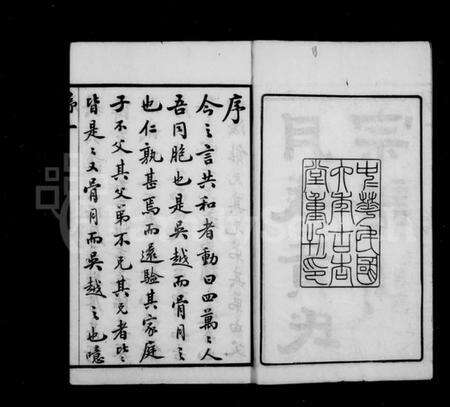 中華民國
堂重
序
今之言共和者動曰四萬〻人
吾同胞也是吳越而骨肉之
也仁孰甚焉而還驗其家庭
子不父其父弟不兄其兄者比〻
皆是〻又骨肉而吳越之也噫
序一